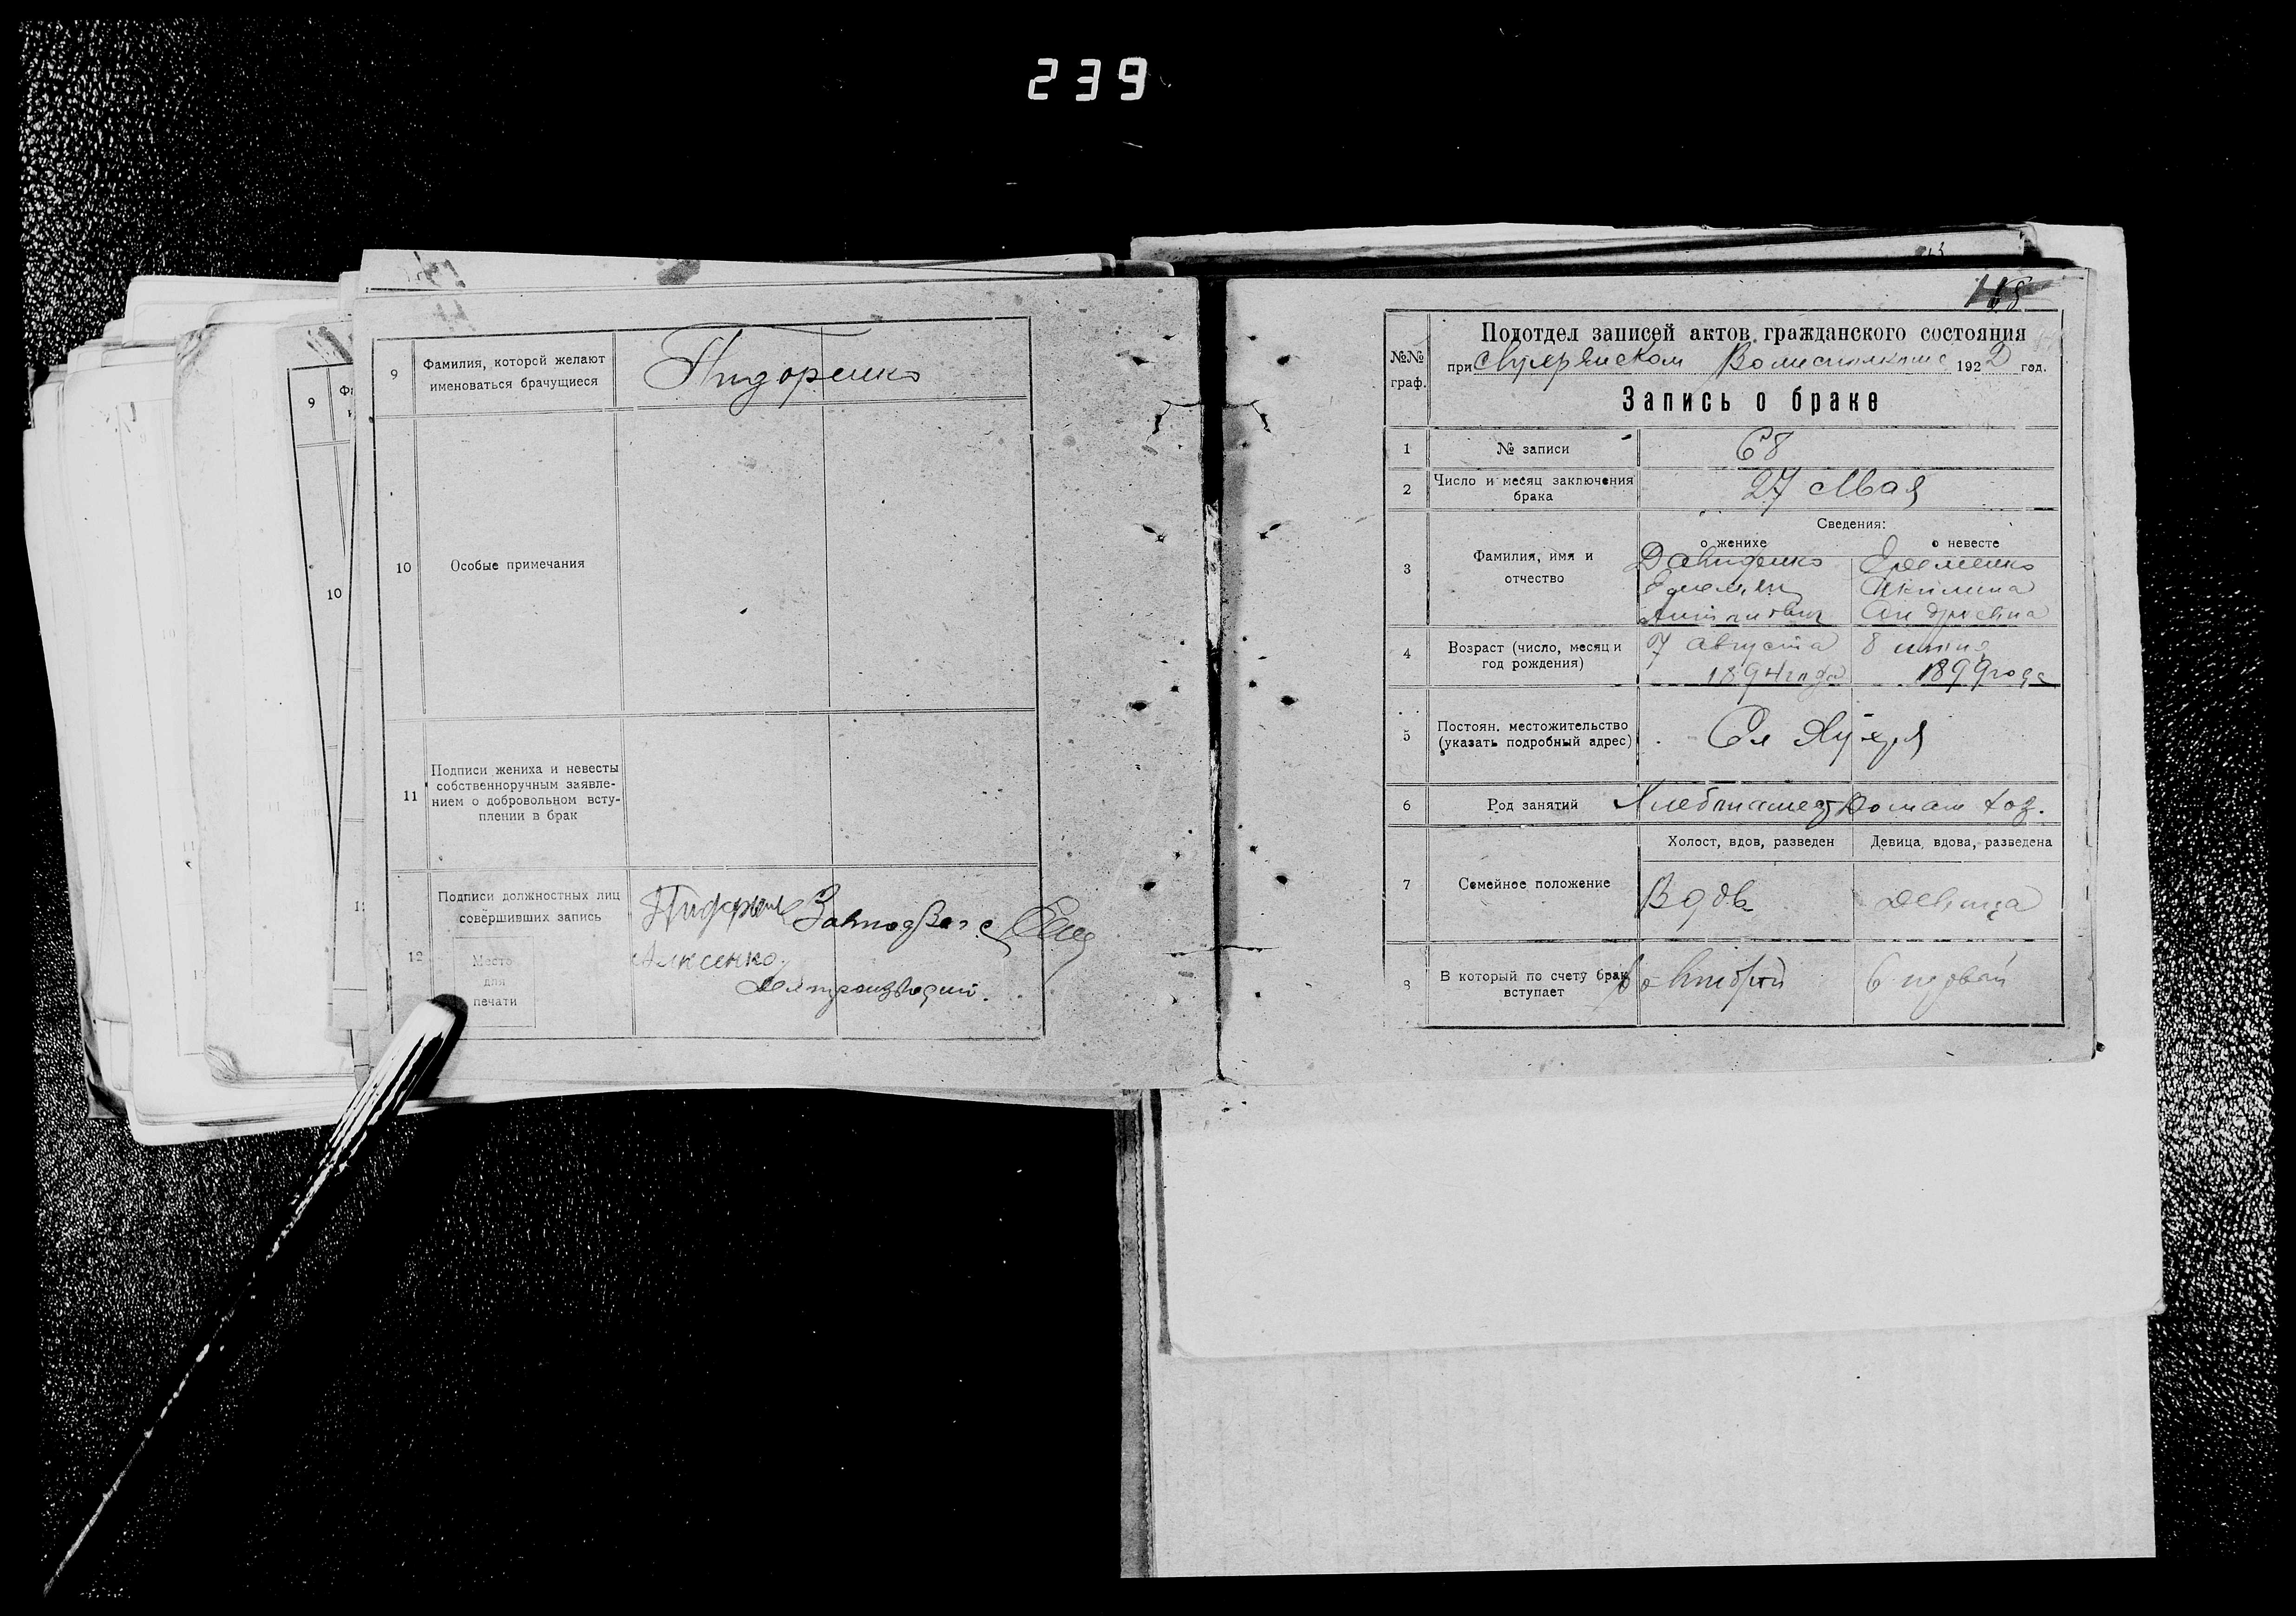 239
9
Фамилия, которой желают
именоваться брачущиеся
Пидоренко
10
Особые примечания
11
Подписи жениха и невесты
собственноручным заявле-
нием о добровольном всту-
плении в брак
12
Подписи должностных лиц
совершивших запись
Место
для
печати
Алксенко
Делопроизводит.
9
10
№№
граф.
Подотдел записей актов гражданского состояния
при Волисполкоме 1922 год.
Запись о браке
1
№ записи
68
2
Число и месяц заключения
брака
27 Мая
3
Фамилия, имя и
отчество
Сведения:
о женихе
о невесте
Давиденко
Емельян
Антонович
Еременко
Акилина
Андреевна
4
Возраст (число, месяц и
год рождения)
7 августа
1894 года
8 июня
1899 года
5
Постоян. местожительство
(указать подробный адрес)
6
Род занятий
Хлебопашец
Домаш хоз.
7
Семейное положение
Холост, вдов, разведен
Девица, вдова, разведена
Вдов
Девица
8
В который по счету брак
вступает
во второй
в первый